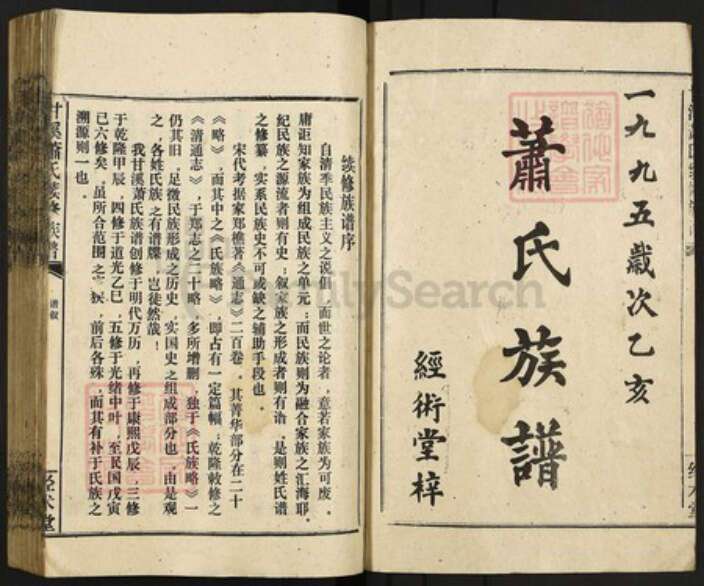 一九九五歲次乙亥
蕭氏族譜
經術堂梓
续修族谱序
自清季民族主义之说倡，而世之论者，意若家族为可废，
庸讵知家族为组成民族之单元；而民族则为融合家族之汇海耶。
纪民族之源流者则有史；叙家族之形成者则有谱，是则姓氏谱
之修纂，实系民族史不可或缺之辅助手段也。
宋代考据家郑樵著《通志》二百卷，其菁华部分在二十
《略》，而其中之《氏族略》，即占有一定篇幅；乾隆敕修之
《清通志》，于郑志之二十略，多所增删，独于《氏族略》一
仍其旧，足徵民族形成之历史，实国史之组成部分也，由是观
之，各姓氏族之有谱牒，岂徒然哉！
我甘溪萧氏族谱创修于明代万历，再修于康熙戊辰，三修
于乾隆甲辰，四修于道光乙巳，五修于光绪中叶，至民国戊寅
已六修矣，虽所合范围之，前后各殊，而其有补于民族之
溯源则一也。
甘溪萧氏续修族谱
谱叙
经术堂
FamilySearch